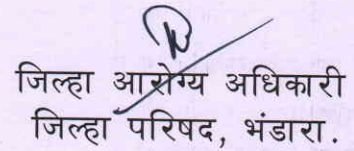 जिल्हा आरोग्य अधिकारी
जिल्हा परिषद, भंडारा.